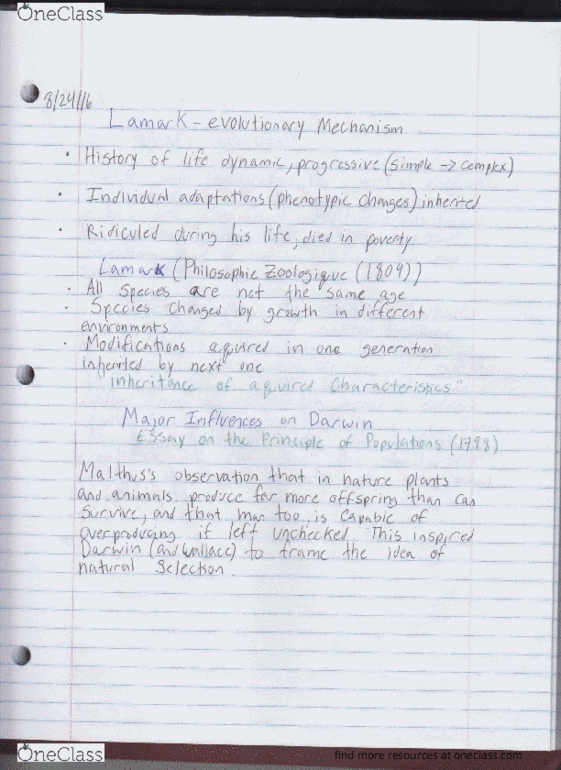 OneClass
8/24/16
Lamark - evolutionary Mechanism
• History of life dynamic, progressive (simple -> complex)
• Individual adaptations (phenotypic changes) inherited
• Ridiculed during his life, died in poverty
Lamark (Philosophic Zoologique (1809))
• All species are not the same age
• Species changed by growth in different
environments
• Modifications aquired in one generation
inherited by next one
"inheritance of aquired Characteristics"
Major Influences on Darwin
Essay on the Principle of Populations (1798)
Malthus's observation that in nature plants
and animals produce far more offspring than can
survive, and that man too is capable of
overproducing if left unchecked. This inspired
Darwin (and Wallace) to frame the idea of
natural selection.
OneClass
find more resources at oneclass.com